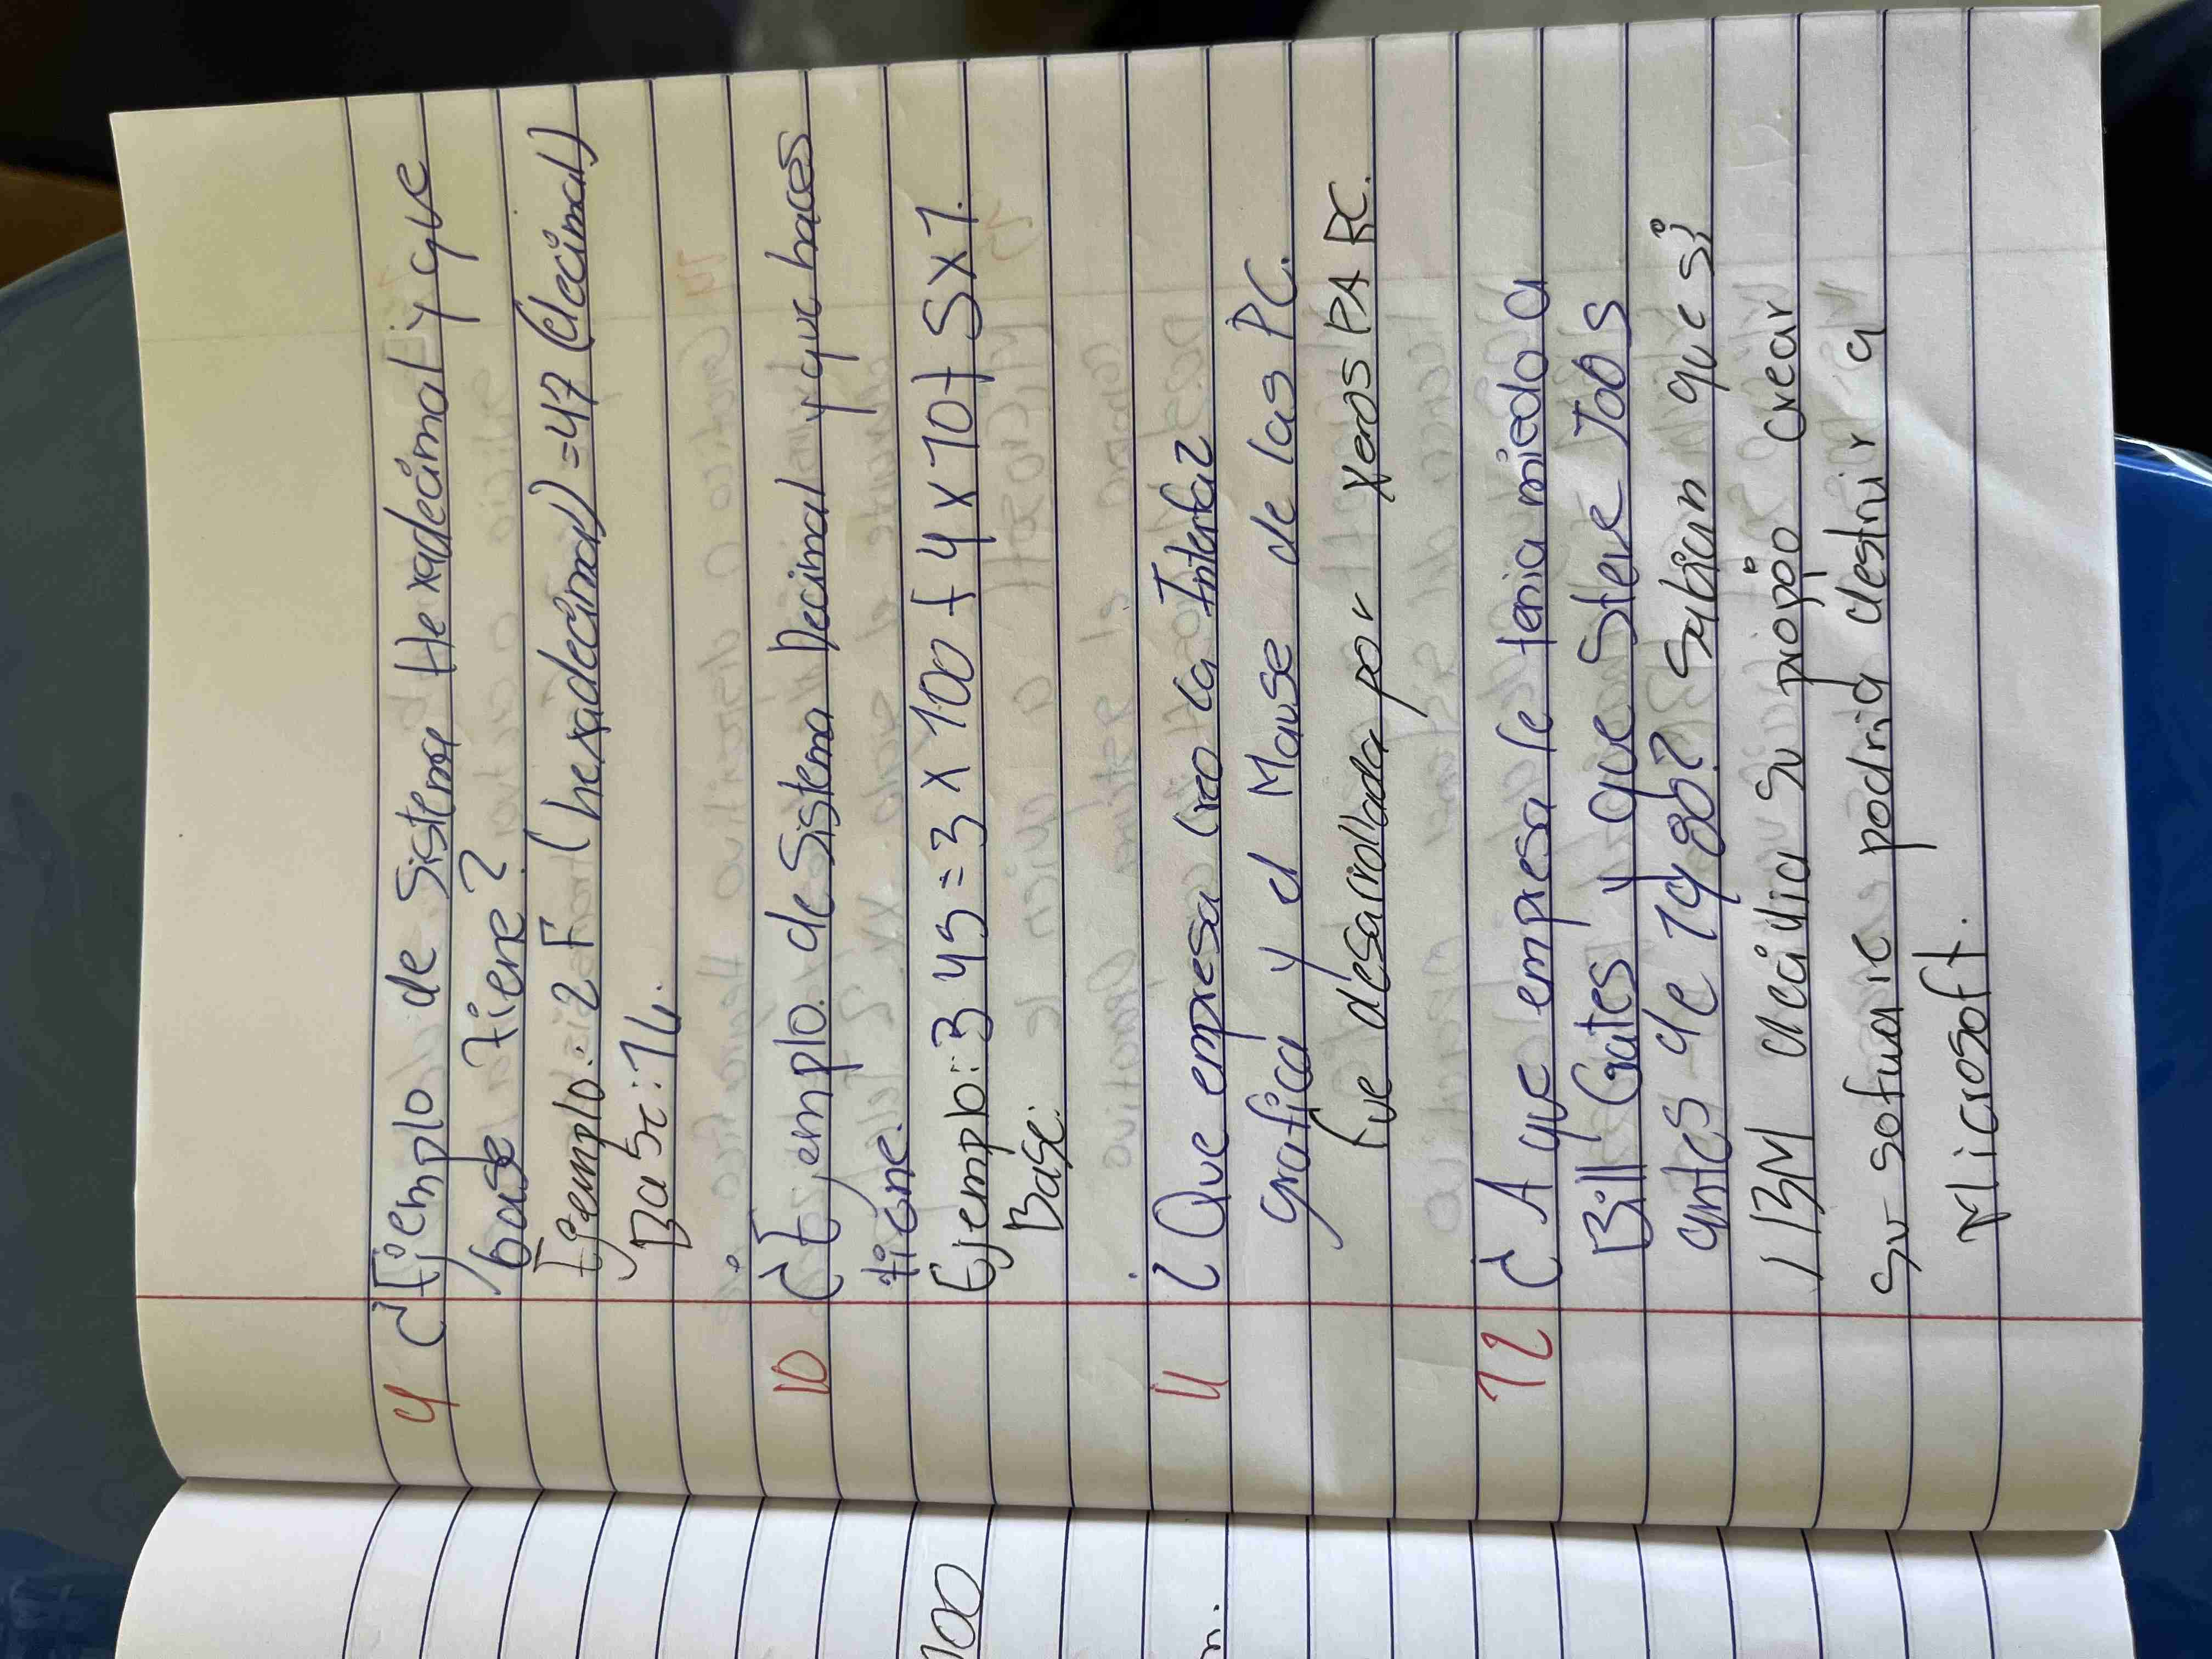 9 ¿Ejemplo de Sistema Hexadecimal y que
base Tiene?
Ejemplo: 2F (hexadecimal) = 47 (decimal)
Base: 16.
10 ¿Ejemplo. de Sistema Decimal y que bases
tiene.
Ejemplo: 345 = 3 x 100 + 4 x 10 + 5 x 1.
Base:
11 ¿Que empresa creo la Interfaz
grafica y el Mause de las PC.
Fue desacrollada por xeros PA RC.
12 ¿A que empresa le tenia miedo a
Bill Gates y que Steve Jobs
antes de 1980? Sabian que si
IBM decidia su propio crear
su sofware podria destruir a
Microsoft.
100
n.